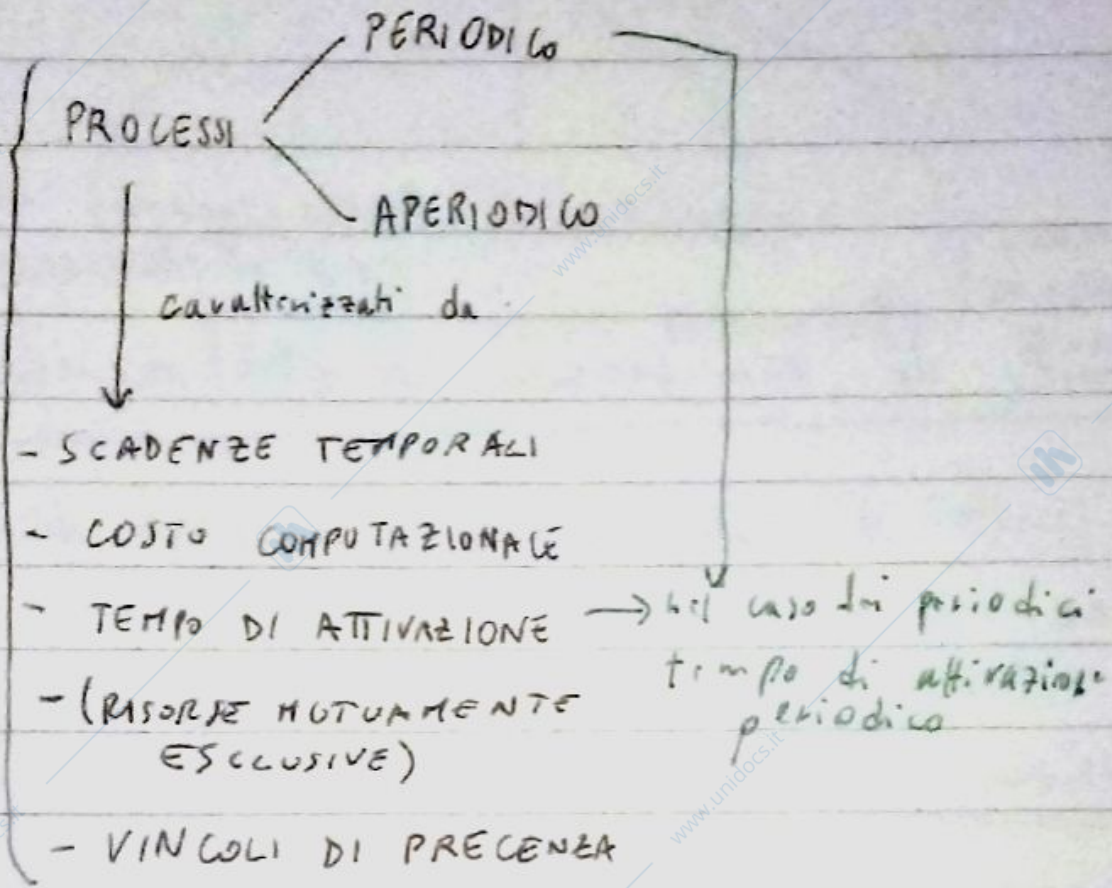 PERIODICO
PROCESSI
APERIODICO
caratterizzati da
- SCADENZE TEMPORALI
- COSTO COMPUTAZIONALE
- TEMPO DI ATTIVAZIONE → nel caso dei periodici
tempo di attivazione
periodico
- (RISORSE MUTUAMENTE
ESCLUSIVE)
- VINCOLI DI PRECENZA
www.unidocs.it
www.unidocs.it